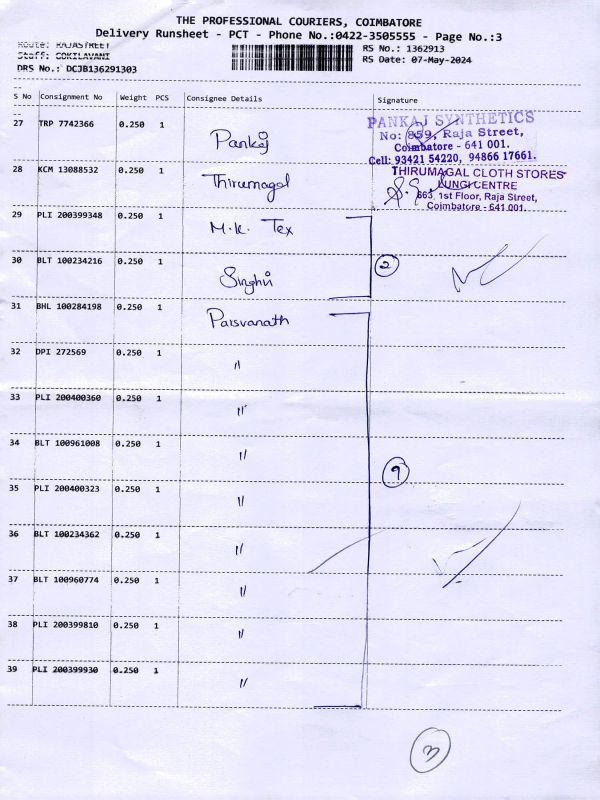 THE PROFESSIONAL COURIERS, COIMBATORE
Delivery Runsheet - PCT - Phone No.:0422-3505555 - Page No.:3
Route: RAJASTREET
RS No.: 1362913
Staff: GOKILAVANI
RS Date: 07-May-2024
DRS No.: DCJB136291303
S No Consignment No Weight PCS Consignee Details Signature
27 TRP 7742366 0.250 1 Pankaj
PANKAJ SYNTHETICS
No: 859, Raja Street,
Coimbatore - 641 001.
Cell: 93421 54220, 94866 17661.
28 KCM 13088532 0.250 1 Thirumagal
THIRUMAGAL CLOTH STORES
LUNGI CENTRE
863, 1st Floor, Raja Street,
Coimbatore - 641 001.
29 PLI 200399348 0.250 1 M.K. Tex
30 BLT 100234216 0.250 1 Singhvi
2
31 BHL 100284198 0.250 1 Parsvanath
32 DPI 272569 0.250 1 "
33 PLI 200400360 0.250 1 "
34 BLT 100961008 0.250 1 "
9
35 PLI 200400323 0.250 1 "
36 BLT 100234362 0.250 1 "
37 BLT 100960774 0.250 1 "
38 PLI 200399810 0.250 1 "
39 PLI 200399930 0.250 1 "
3